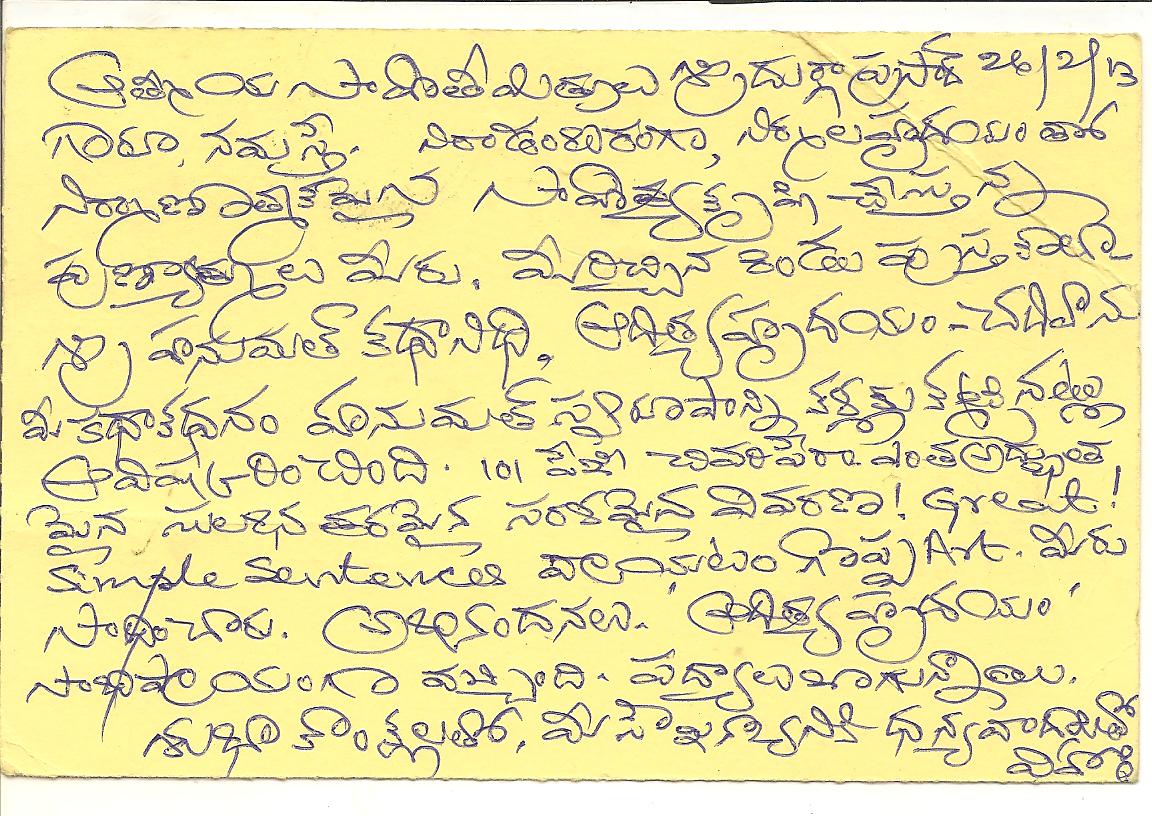 ఆత్మీయ సాహితీ మిత్రులు శ్రీ దుర్గా ప్రసాద్ 26/2/13
గారూ, నమస్తే. నిరాడంబరంగా, నిర్మల హృదయం తో
నిర్మాణాత్మకమైన సాహిత్య కృషి చేస్తున్న
పుణ్యాత్ములు మీరు. మీరిచ్చిన రెండు పుస్తకాలూ
శ్రీ హనుమత్ కథానిధి, ఆదిత్య హృదయం - చదివాను
మీ కథాకథనం హనుమత్ స్వరూపాన్ని కళ్ళకు కట్టినట్లు
ఆవిష్కరించింది. 101 పేజీ చివరిపేరా ఎంత అద్భుత
మైన సులభతరమైన సరళమైన వివరణ! Great!
Simple sentences వ్రాయటం గొప్ప Art. మీరు
సాధించారు. అభినందనలు. 'ఆదిత్య హృదయం'
సాభిప్రాయంగా వచ్చింది. పద్యాలు బాగున్నాయి.
శుభాకాంక్షలతో, మీ సౌజన్యానికి ధన్యవాదాలతో
విహారి